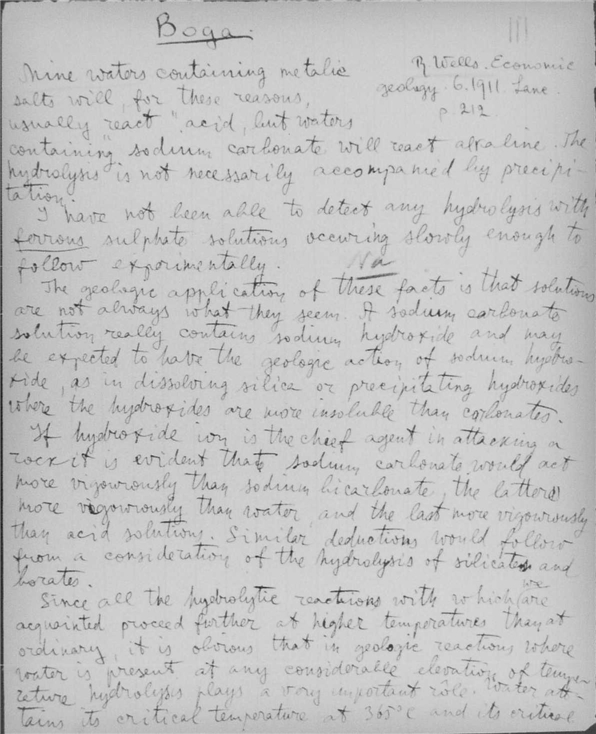 Boga.
R Wells. Economic
geology. 6. 1911. Lane.
p. 212
Mine waters containing metalic
salts will, for these reasons,
usually react "acid, but waters
containing" sodium carbonate will react alkaline. The
hydrolysis is not necessarily accompanied by precipi-
tation.
I have not been able to detect any hydrolysis with
ferrous sulphate solutions occuring slowly enough to
follow exporimentally.
Na
The geologic application of these facts is that solutions
are not always what they seem. A sodium carbonate
solution really contains sodium hydroxide and may
be expected to have the geologic action of sodium hydro-
xide, as in dissolving silica or precipitating hydroxides
where the hydroxides are more insoluble than carbonates.
If hydroxide ion is the chief agent in attacking a
rock it is evident that sodium carbonate would act
more vigourously than sodium bicarbonate, the latter
more vigourously than water, and the last more vigourously
than acid solutions. Similar deductions would follow
from a consideration of the hydrolysis of silicates and
borates.
Since all the hydrolytic reactions with which we are
acquainted proceed further at higher temperatures than at
ordinary, it is obvious that in geologic reactions where
water is present at any considerable elevation of tempe-
reture hydrolysis plays a very important rôle. Water att-
tains its critical temperature at 365°C and its critical